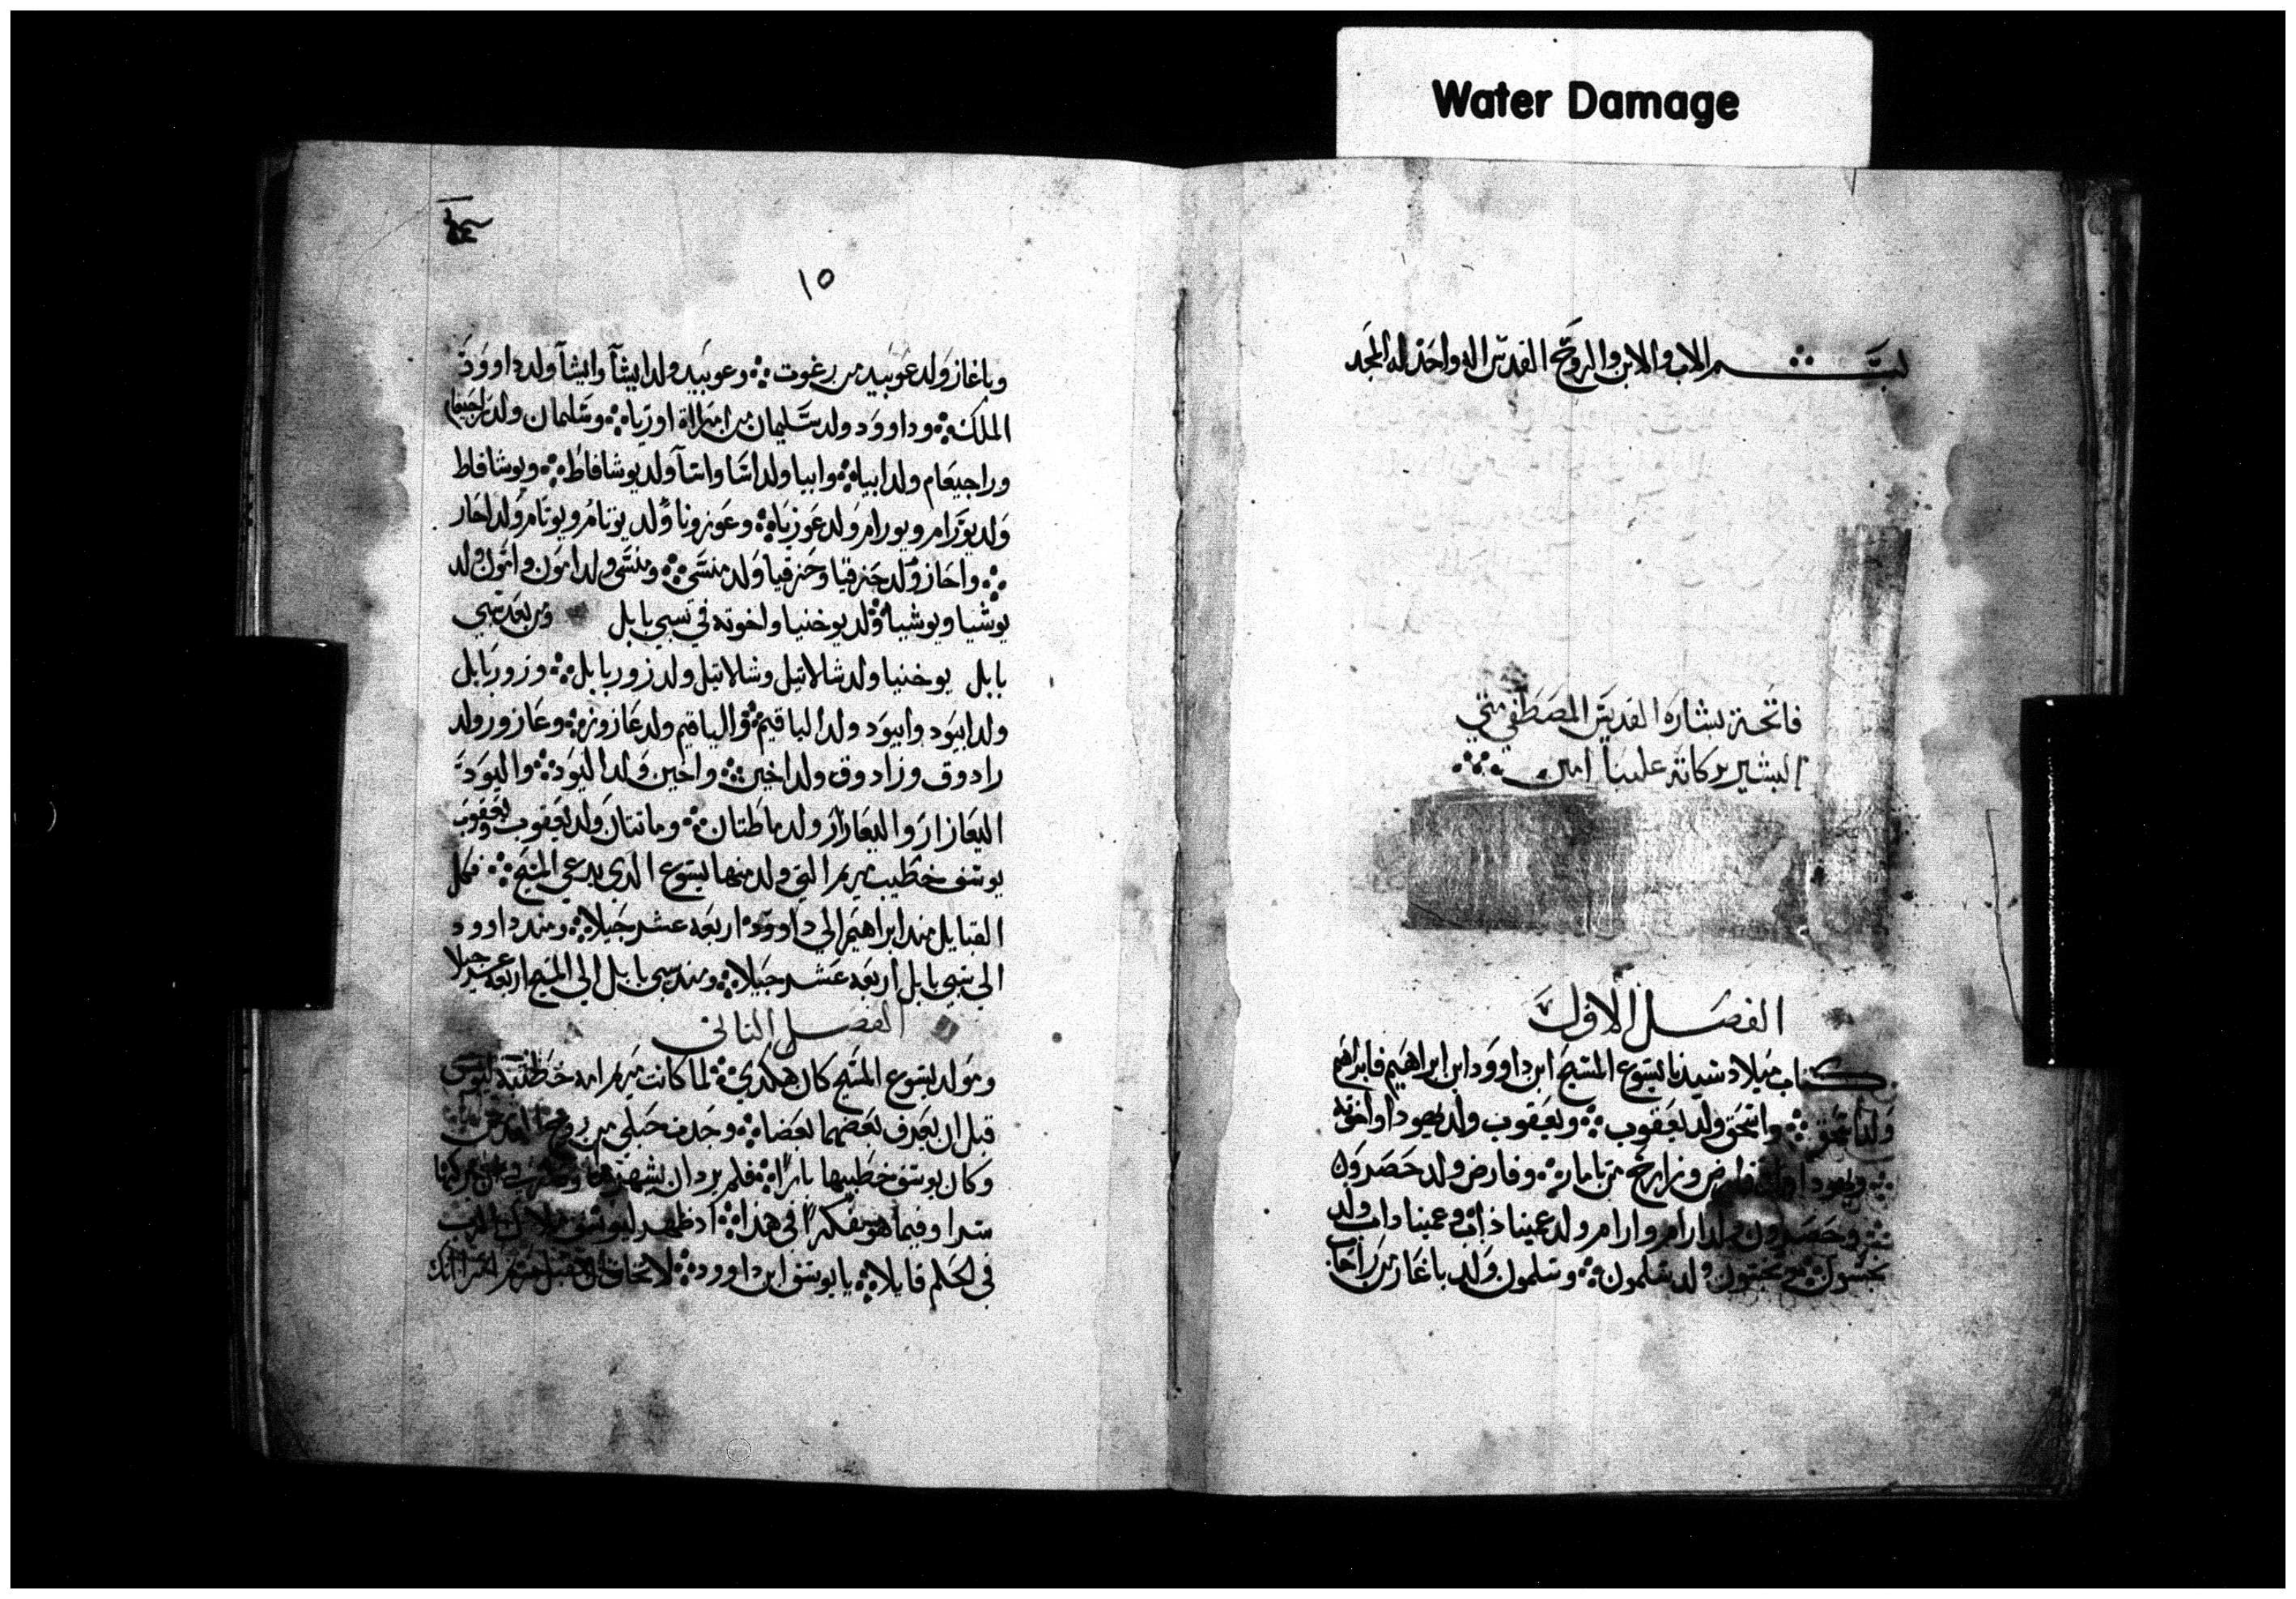 Water Damage
بسم الاب والابن والروح القدس اله واحد له المجد
فاتحة بشارة القديس المصطفي متي
البشير بركاته علينا امين
الفصل الاول
كتاب ميلاد سيدنا يسوع المسيح ابن داوود ابن ابراهيم فابراهيم
ولد اسحق واسحق ولد يعقوب ويعقوب ولد يهودا واخوته
ويهودا ولد فارص وزارح من تامار وفارص ولد حصرون
وحصرون ولد ارام وارام ولد عميناداب وعميناداب ولد
نحشون ولد سلمون وسلمون ولد باغاز من راحاب
١٥
وباغاز ولد عوبيد من رغوت وعوبيد ولد ايشا وايشا ولد داوود
الملك وداوود ولد سليمان من امراة اورياه وسلمان ولد راجيعام
وراجيعام ولد ابياه وابيا ولد اسا واسا ولد يوشافاط ويوشافاط
ولد يورام ويورام ولد عوزياه وعوزونا ولد يوتام ويوتام ولد احاز
واحاز ولد حزقيا وحزقيا ولد منسى ومنسى ولد امون وامون ولد
يوشيا ويوشيا ولد يوخنيا واخوته في سبي بابل ومن بعد سبي
بابل يوخنيا ولد شلاتيل وشلاتيل ولد زوربابل وزوربابل
ولد ابيود وابيود ولد الياقيم والياقيم ولد عازور وعازور ولد
زادوق وزادوق ولد اخين واخين ولد اليود واليود
اليعازار واليعازار ولد ماطتان وماتتان ولد يعقوب ويعقوب
يوسف خطيب مريم التي ولد منها يسوع الدي يدعي المسيح فكل
القبايل مند ابراهيم الي داوود اربعه عشر جيلا ومند داوود
الي سبي بابل اربعه عشر جيلا ومند سبي بابل الي المسيح اربعه عشر جيلا
الفصل الثاني
ومولد يسوع المسيح كان هكدي لما كانت مريم امه خطيبة ليوسف
قبل ان يعرف بعضهما بعضا وجدت حبلي من روح القدس
وكان يوسف خطيبها بارا فلم يرد ان يشهرها
سرا وفيما هو مفكرا في هذا اد ظهر ليوسف ملاك الرب
في الحلم قايلا يا يوسف ابن داوود لا تخاف ان تقبل مريم امراتك